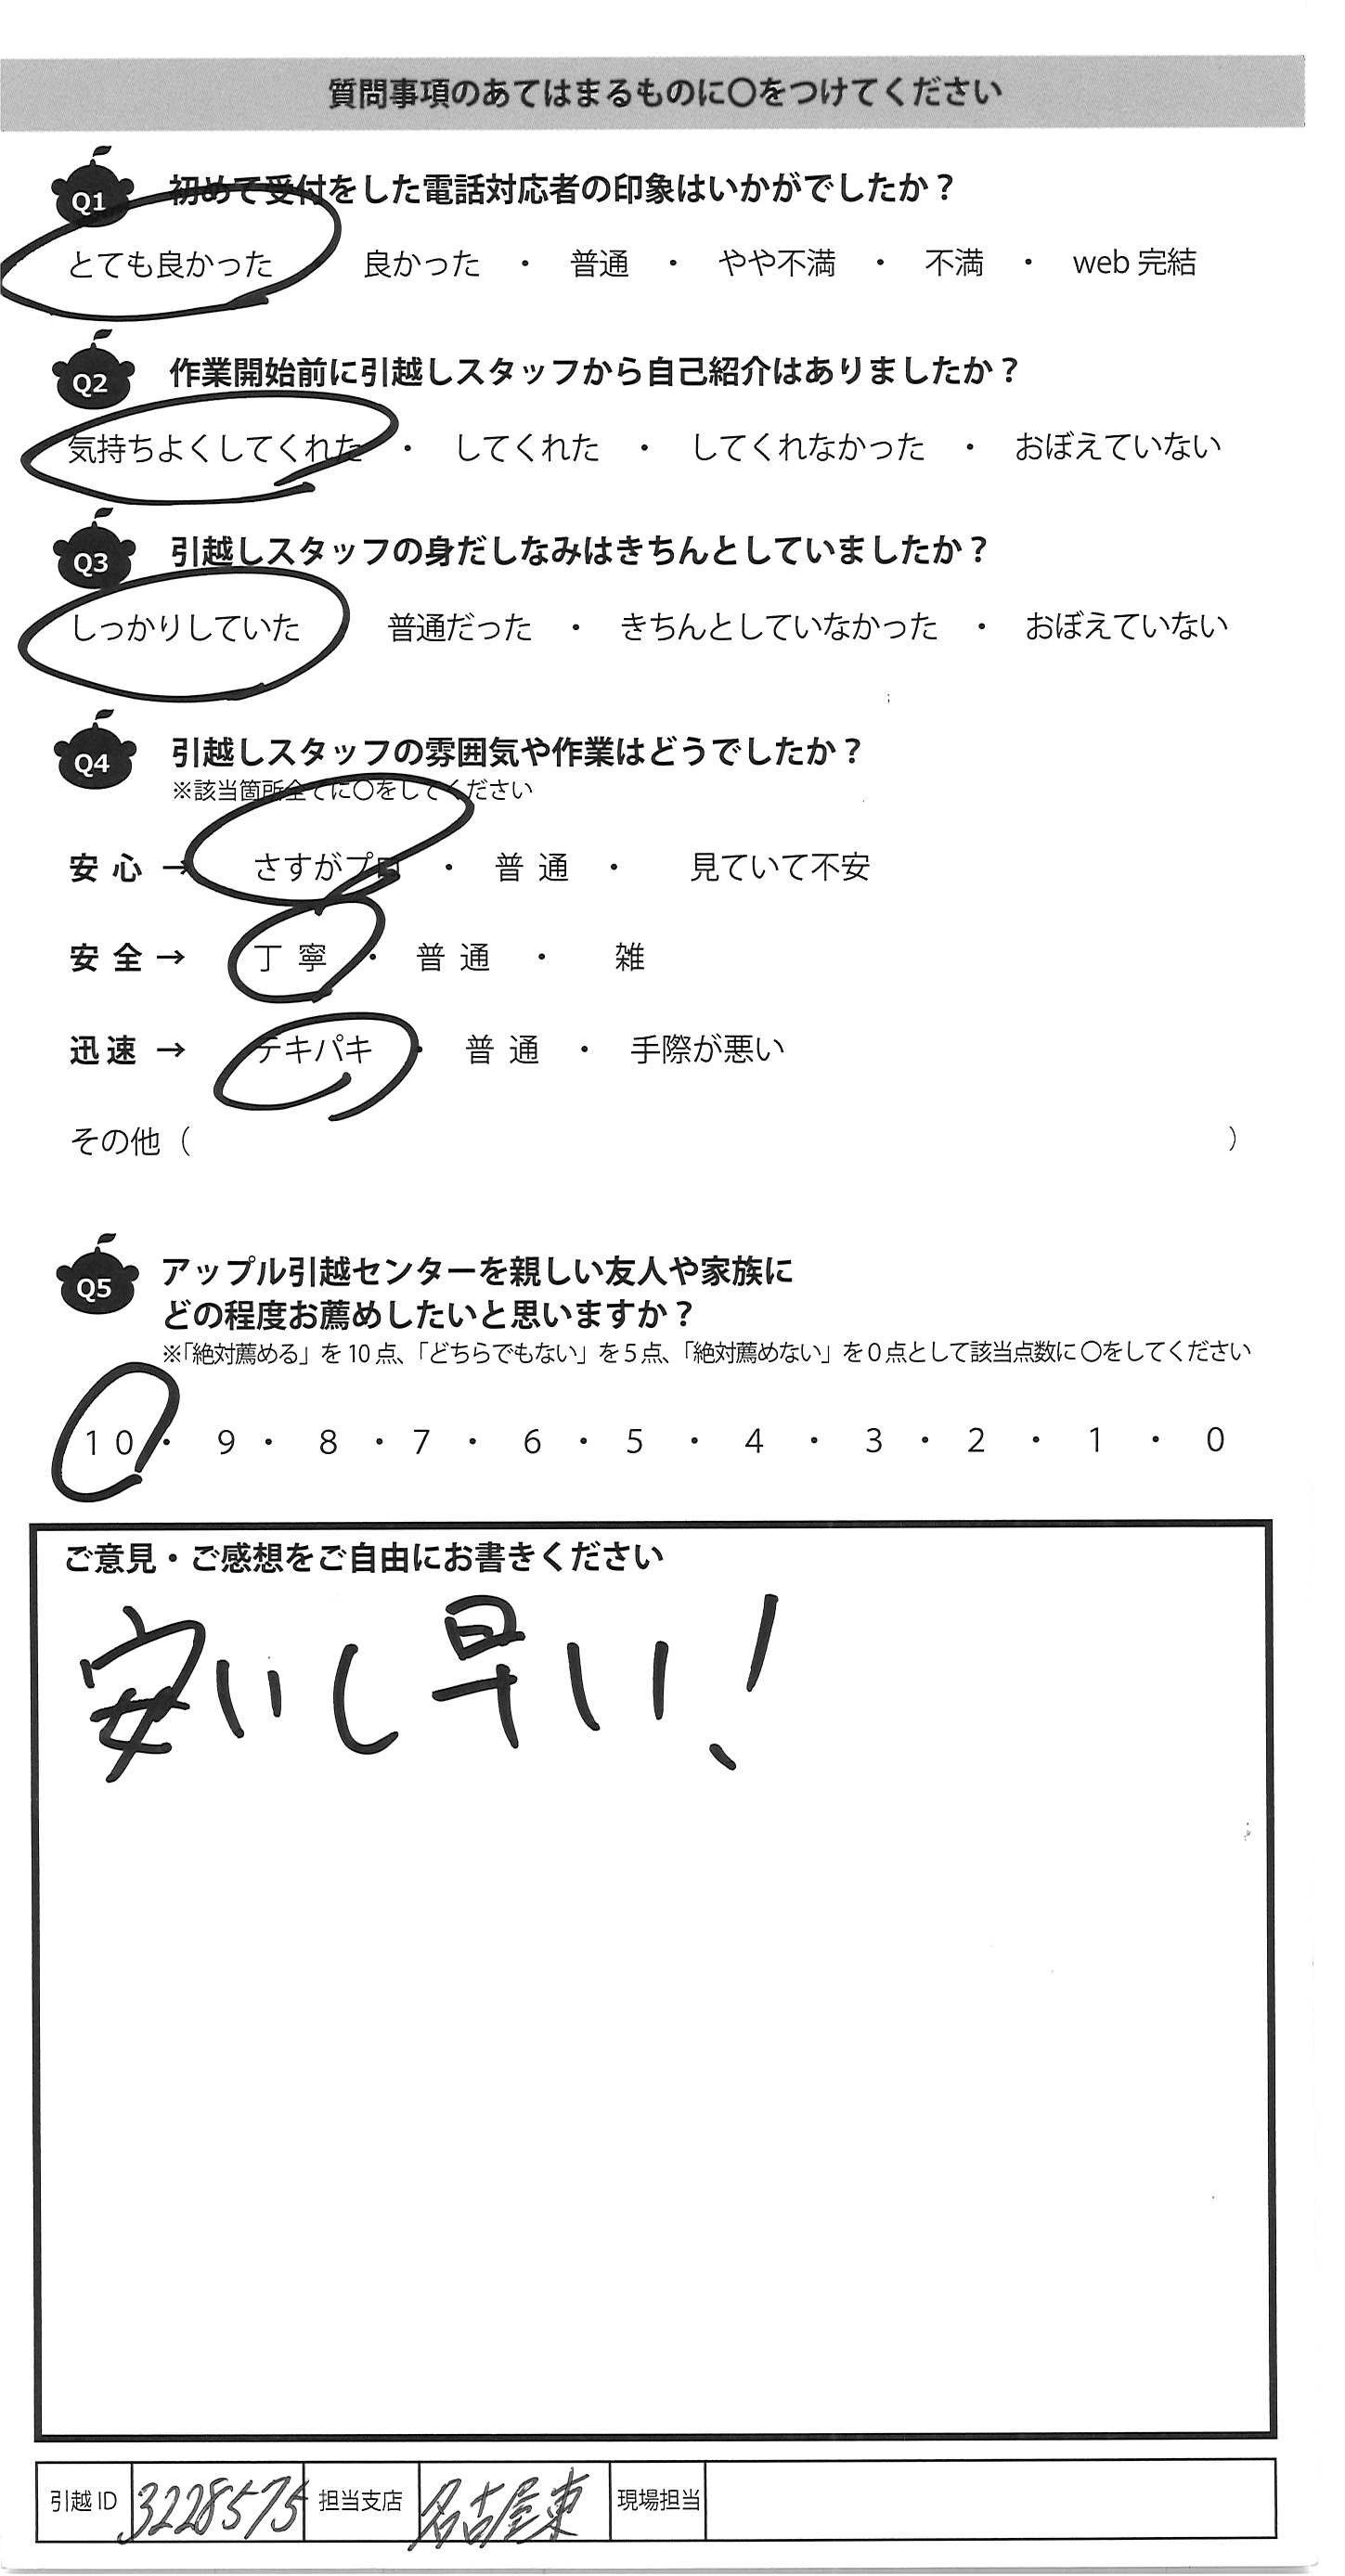 質問事項のあてはまるものに〇をつけてください
Q1 初めて受付をした電話対応者の印象はいかがでしたか？
とても良かった 良かった ・ 普通 ・ やや不満 ・ 不満 ・ web 完結
Q2 作業開始前に引越しスタッフから自己紹介はありましたか？
気持ちよくしてくれた ・ してくれた ・ してくれなかった ・ おぼえていない
Q3 引越しスタッフの身だしなみはきちんとしていましたか？
しっかりしていた 普通だった ・ きちんとしていなかった ・ おぼえていない
Q4 引越しスタッフの雰囲気や作業はどうでしたか？
※該当箇所全てに〇をしてください
安 心 → さすがプロ ・ 普 通 ・ 見ていて不安
安 全 → 丁 寧 ・ 普 通 ・ 雑
迅 速 → テキパキ ・ 普 通 ・ 手際が悪い
その他（ ）
Q5 アップル引越センターを親しい友人や家族に
どの程度お薦めしたいと思いますか？
※「絶対薦める」を 10 点、「どちらでもない」を 5 点、「絶対薦めない」を 0 点として該当点数に 〇をしてください
10 ・ 9 ・ 8 ・ 7 ・ 6 ・ 5 ・ 4 ・ 3 ・ 2 ・ 1 ・ 0
ご意見・ご感想をご自由にお書きください
安いし早い！
引越 ID 3228575 担当支店 名古屋東 現場担当